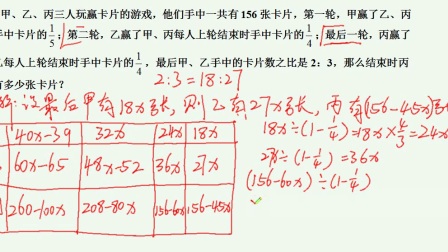 甲、乙、丙三人玩赢卡片的游戏,他们手中一共有156张卡片,第一轮,甲赢了乙、丙
手中卡片的1/5;第二轮,乙赢了甲、丙每人上轮结束时手中卡片的1/4;最后一轮,丙赢了
乙每人上轮结束时手中卡片的1/4,最后甲、乙手中的卡片数之比是2:3,那么结束时丙
有多少张卡片?
2:3=18:27
解:设最后甲有18x张,则乙有27x张,丙有(156-45x)张
40x-39 32x 24x 18x
60x-65 48x-52 36x 27x
260-100x 208-80x 156-60x 156-45x
18x÷(1-1/4)=18x×4/3=24x
27x÷(1-1/4)=36x
(156-60x)÷(1-1/4)